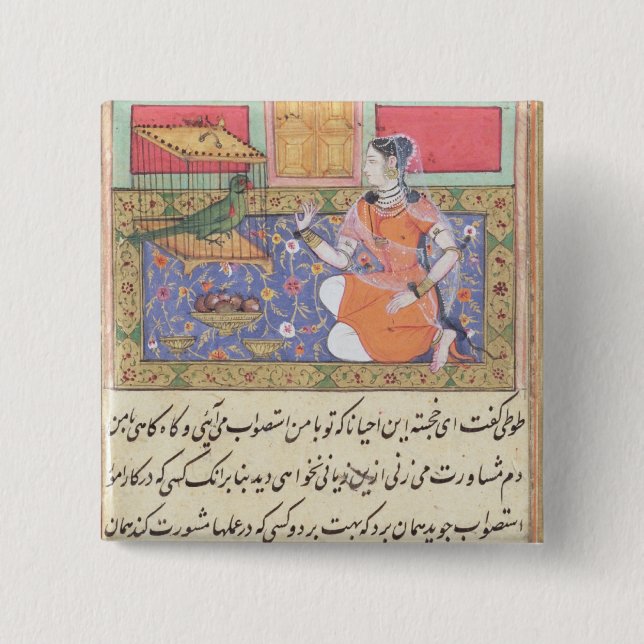 طوطی گفت ای خجسته این احیانا که تو با من استصواب می آیئی و گاه گاهی با من
دم مشاورت می زنی ازین زیانی نخواهی دید بنابرانک کسی که در کارامو
استصواب جوید همان برد که بهت برد و کسی که در عملها مشورت کند همان